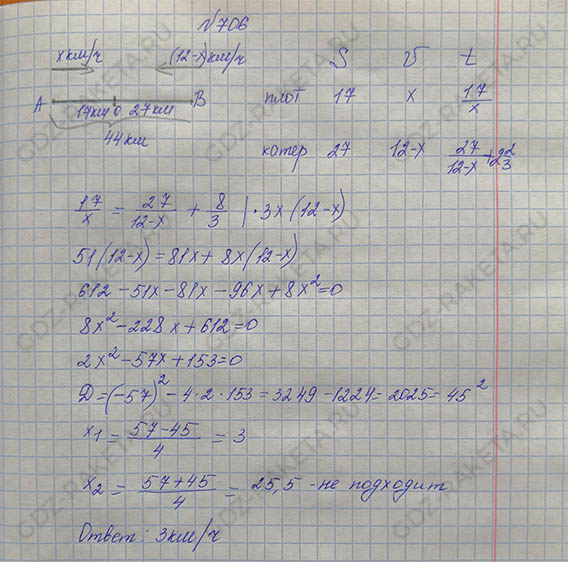 №706
x км/ч (12-x) км/ч
S V t
A 17км 0 27км B
44км
плот 17 x 17/x
катер 27 12-x 27/(12-x) + 2 2/3
17/x = 27/(12-x) + 8/3 | · 3x(12-x)
51(12-x) = 81x + 8x(12-x)
612 - 51x - 81x - 96x + 8x² = 0
8x² - 228x + 612 = 0
2x² - 57x + 153 = 0
Д = (-57)² - 4 · 2 · 153 = 3249 - 1224 = 2025 = 45²
x₁ = (57-45)/4 = 3
x₂ = (57+45)/4 = 25,5 - не подходит
Ответ: 3км/ч
GDZ-RAKETA.RU